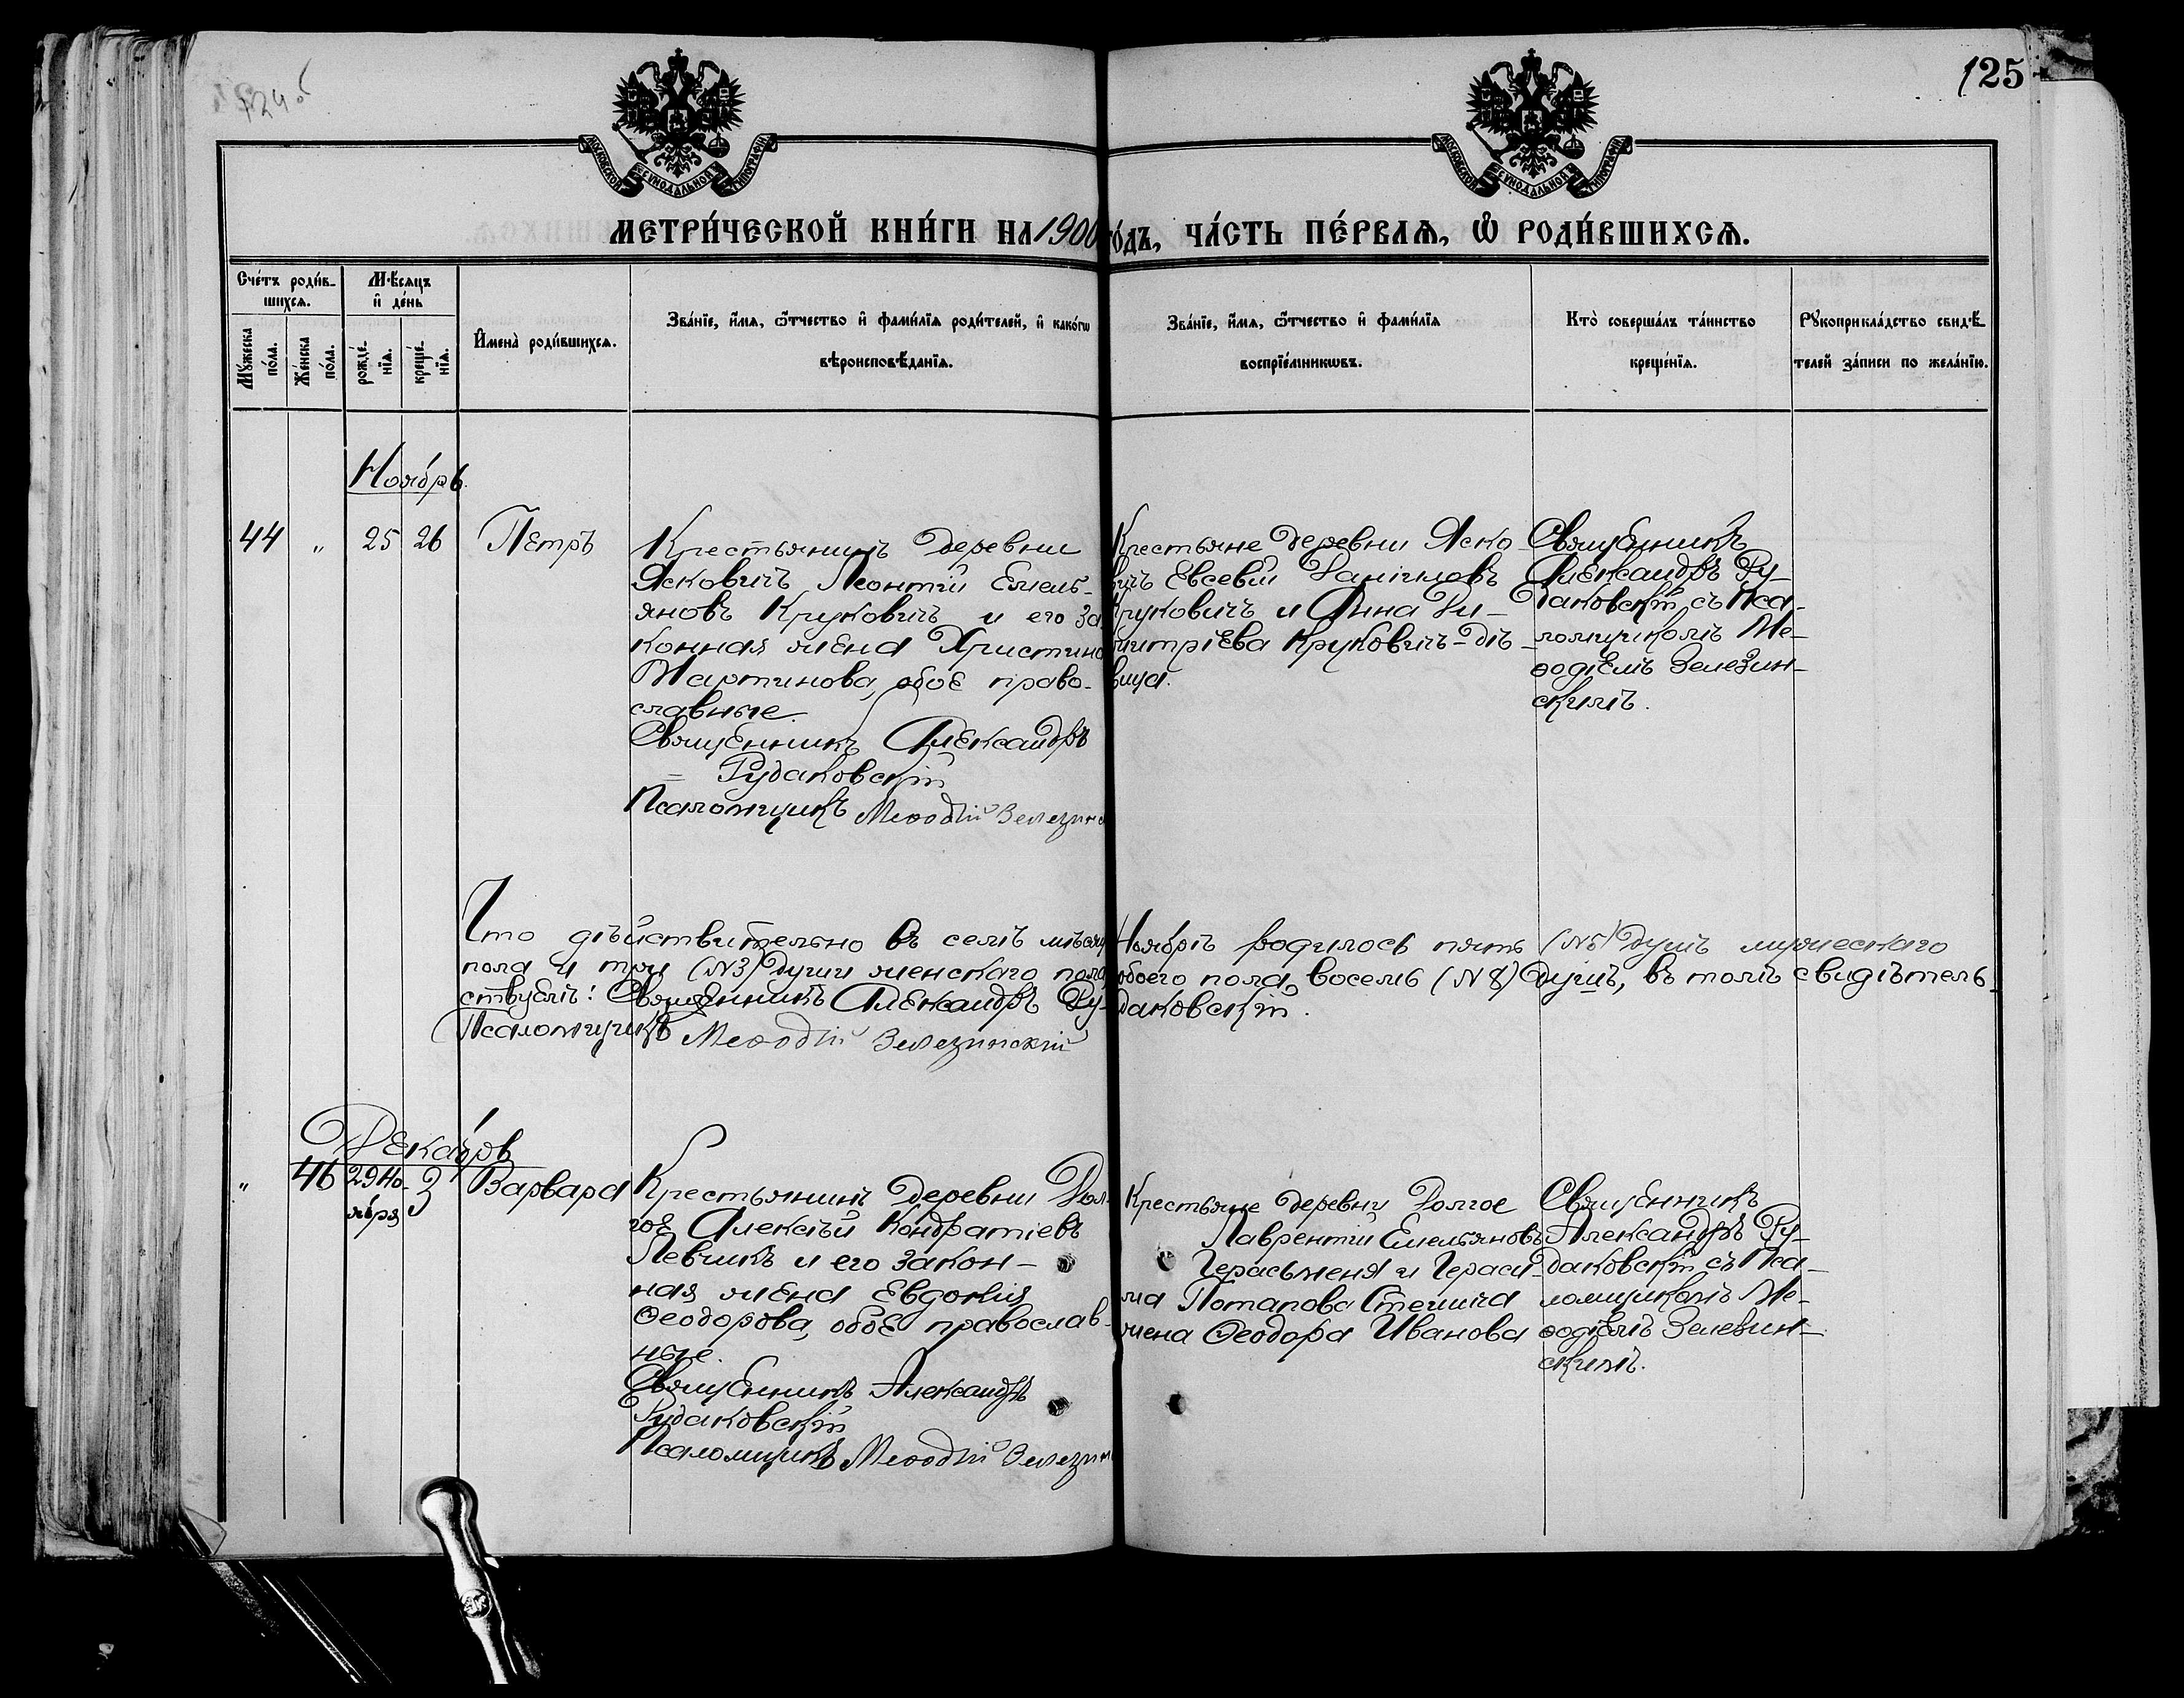 124 об
125
МОСКОВСКОЙ СѴНОДАЛЬНОЙ ТИПОГРАФІИ
МОСКОВСКОЙ СѴНОДАЛЬНОЙ ТИПОГРАФІИ
МЕТРИ́ЧЕСКОЙ КНИ́ГИ НА 1900 го́дъ, ЧА́СТЬ ПЕ́РВАѦ, Ѽ РОДИ́ВШИХСѦ.
Сче́тъ роди́в-
шихсѧ.
Мꙋжеска по́ла.
Же́нска по́ла.
Мѣ́сяцъ
и҆ де́нь
рожде́-нїѧ.
креще́-нїѧ.
И҆мена̀ роди́вшихсѧ.
Зва́нїе, и҆́мѧ, ѻ҆́тчество и҆ фами́лїѧ роди́телей, и҆ како́гѡ
вѣроисповѣ́данїѧ.
Зва́нїе, и҆́мѧ, ѻ҆́тчество и҆ фами́лїѧ
воспрїе́мникѡвъ.
Кто̀ соверша́лъ та́инство
креще́нїѧ.
Рꙋкоприкла́дство свидѣ́-
телей за́писи по жела́нїю.
Ноябрь
44 " 25 26 Петръ
Крестьянинъ деревни
Ясковичъ Леонтій Емель-
яновъ Круковичъ и его за
конная жена Христина
Мартинова, обое право-
славные.
Священникъ Александръ
= Рудаковскій
Псаломщикъ Меѳодій Зелезинс
Крестьяне деревни Яско-
вичъ Евсевій Даниловъ
Круковичъ и Анна Ди-
митріева Круковичъ-дѣ-
вица.
Священникъ
Александръ Ру-
даковскій съ Пса-
ломщикомъ Ме-
ѳодіемъ Зелезин-
скимъ.
Что дѣйствительно въ семъ мѣсяцѣ Ноябрѣ родилось пять (№5) душъ мужескаго
пола и три (№3) души женскаго пола, обоего пола, восемь (№8) душъ, въ томъ свидѣтель-
ствуемъ: Священникъ Александръ Ру-даковскій.
Псаломщикъ Меѳодій Зелезинскій
Декабрь
" 46 29 Но-ября 3 Варвара
Крестьянинъ деревни Дол-
гое Алексѣй Кондратіевъ
Левчикъ и его закон-
ная жена Евдокія
Ѳеодорова, обое православ-
ные.
Священникъ Александръ
Рудаковскій
Псаломщикъ Меѳодій Зелезин
Крестьяне деревни Долгое
Лаврентій Емельяновъ
Герасименя и Гераси-
ма Потапова Стешица
жена Ѳеодора Иванова
Священникъ
Александръ Ру-
даковскій съ Пса-
ломщикомъ Ме-
ѳодіемъ Зелезин-
скимъ.